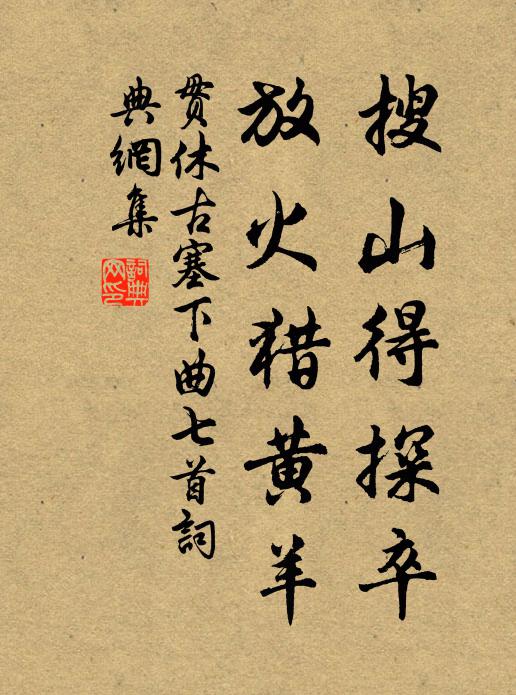 搜山得探卒
放火猎黄羊
贯休古塞下曲七首詞
典網集
詞典
网印